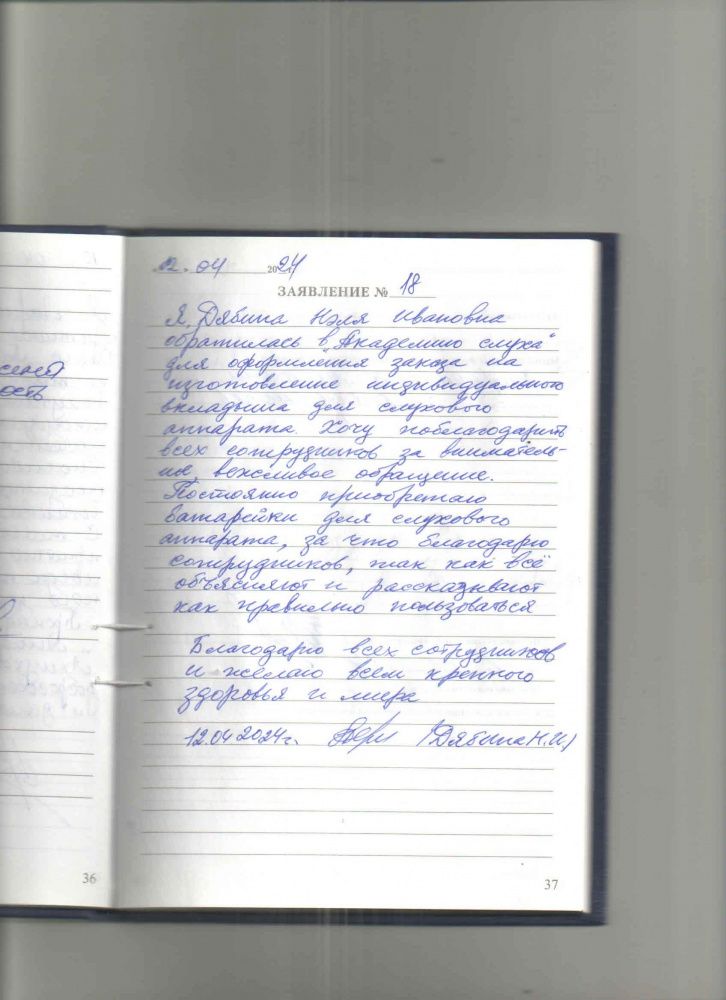 12.04 2024 г.
ЗАЯВЛЕНИЕ № 18
Я, Дябина Нэля Ивановна
обратилась в "Академию слуха"
для оформления заказа на
изготовление индивидуального
вкладыша для слухового
аппарата. Хочу поблагодарить
всех сотрудников за вниматель-
ное, вежливое обращение.
Постоянно приобретаю
батарейки для слухового
аппарата, за что благодарю
сотрудников, так как всё
объясняют и рассказывают
как правильно пользоваться
Благодарю всех сотрудников
и желаю всем крепкого
здоровья и мира
12.04 2024 г. (Дябина Н.И.)
ость
36
37